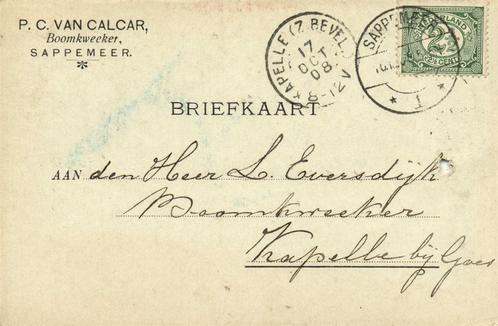 P. C. VAN CALCAR,
Boomkweeker,
SAPPEMEER.
KAPELLE (Z. BEVEL.)
17
OCT
08
8-12V
SAPPEMEER
1
BRIEFKAART
AAN den Heer L. Eversdijk
Boomkweeker
Kapelle bij Goes